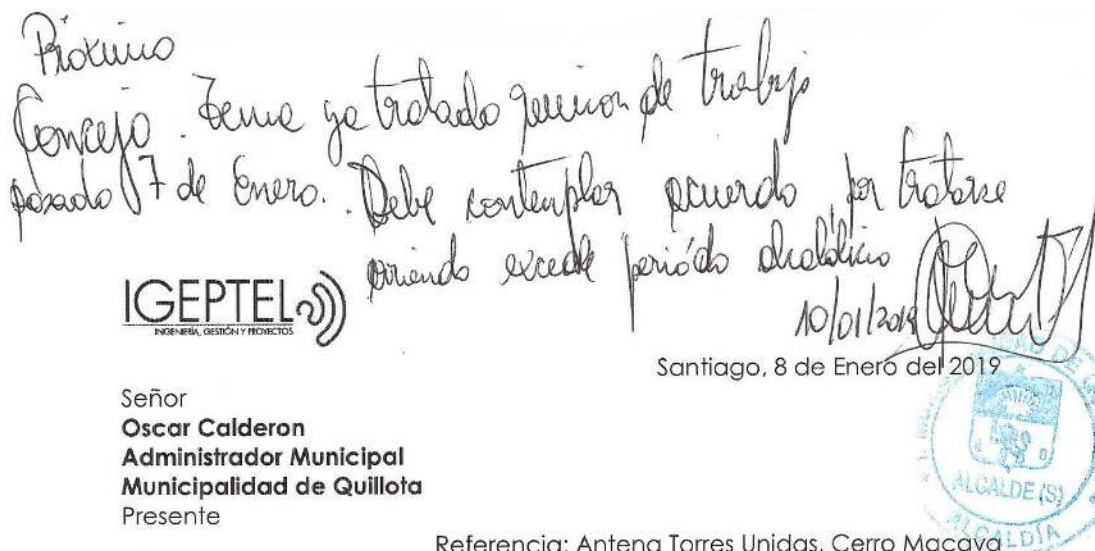 Próximo
Concejo. Tema ya tratado reunión de trabajo
pasado 7 de Enero. Debe contemplar acuerdo por tratarse
arriendo excede período alcaldicio
10/01/2019
IGEPTEL
INGENIERÍA, GESTIÓN Y PROYECTOS
Santiago, 8 de Enero del 2019
Señor
Oscar Calderon
Administrador Municipal
Municipalidad de Quillota
Presente
ALCALDE (S)
ALCALDÍA
Referencia: Antena Torres Unidas, Cerro Macaya